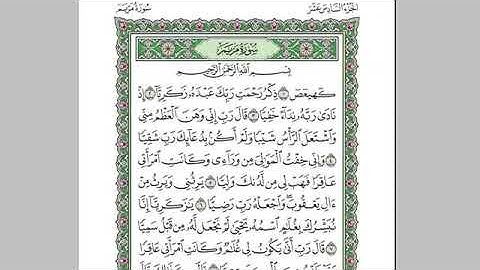 الجزء السادس عشر
سورة مريم
سورة مريم
بسم الله الرحمن الرحيم
كهيعص ١ ذكر رحمت ربك عبده زكريا ٢ إذ
نادى ربه نداء خفيا ٣ قال رب إني وهن العظم مني
واشتعل الرأس شيبا ولم أكن بدعائك رب شقيا
٤ وإني خفت الموالي من وراءي وكانت امرأتي
عاقرا فهب لي من لدنك وليا ٥ يرثني ويرث من
ءال يعقوب واجعله رب رضيا ٦ يزكريا إنا
نبشرك بغلم اسمه يحيى لم نجعل له من قبل سميا
٧ قال رب أنى يكون لي غلم وكانت امرأتي عاقرا